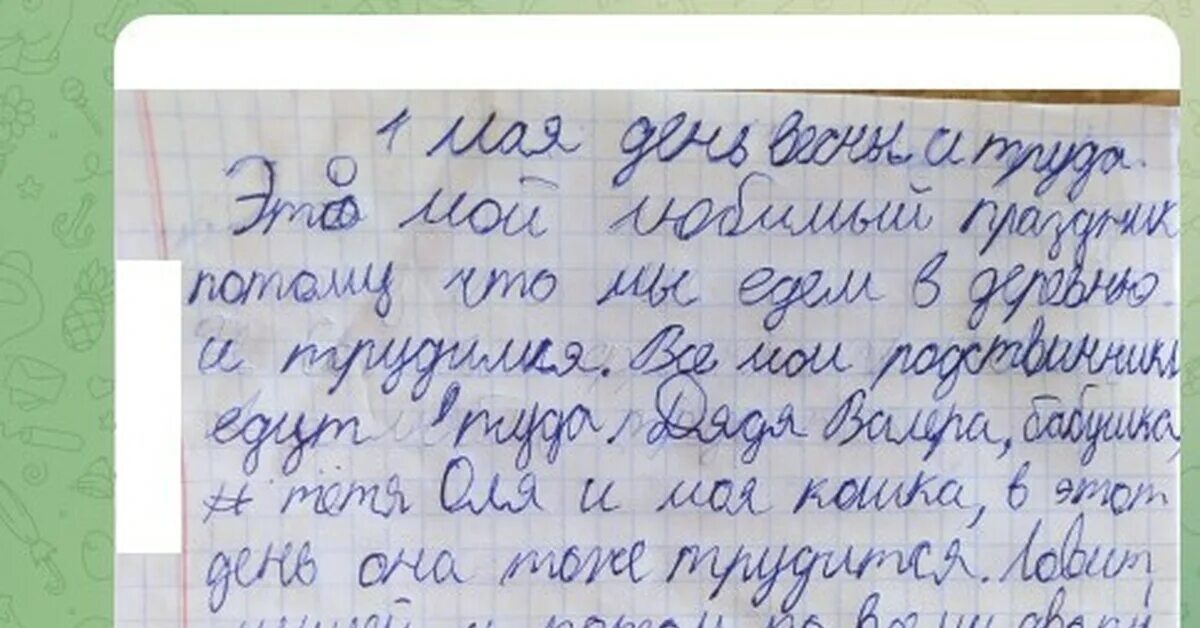 1 мая день весны и труда.
Это мой любимый праздник
потому что мы едем в деревню
и трудимся. Все мои родствинники
едут туда. Дядя Валера, бабушка,
тётя Оля и моя кошка, в этот
день она тоже трудится. Ловит
мышей и потом по всему двору